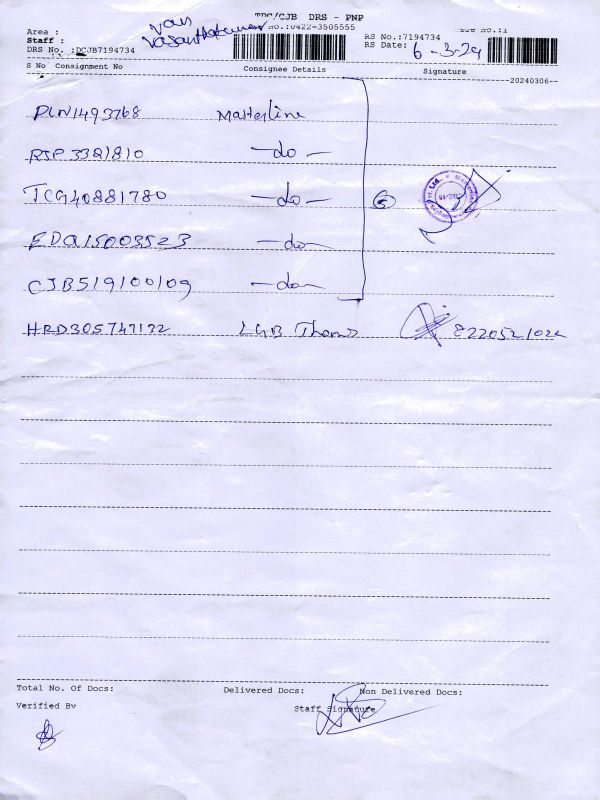 TDC/CJB DRS - PNP
No.:0422-3505555
Van
Area :
Staff : Vasanthakumar
RS No.:7194734
RS Date: 6-3-24
DRS No. :DCJB7194734
S No Consignment No Consignee Details Signature
--20240306--
PLN1493768 Masterline
RJP3381810 -do-
TCG40881780 -do-
EDQ15003523 -do-
CJB519100109 -do-
HRD305747132 LGB Thomas 8220521022
Total No. Of Docs: Delivered Docs: Non Delivered Docs:
Verified By Staff Signature